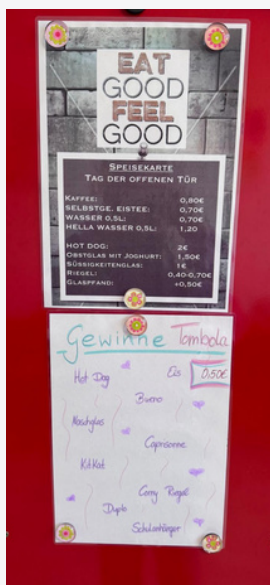 EAT
GOOD
FEEL
GOOD
SPEISEKARTE
TAG DER OFFENEN TÜR
KAFFEE: 0,80€
SELBSTGE. EISTEE: 0,70€
WASSER 0,5L: 0,70€
HELLA WASSER 0,5L: 1,20
HOT DOG: 2€
OBSTGLAS MIT JOGHURT: 1,50€
SÜSSIGKEITENGLAS: 1€
RIEGEL: 0,40-0,70€
GLASPFAND: +0,50€
Gewinne Tombola
0,50€
Hot Dog Eis
Bueno
Naschglas
Caprisonne
KitKat
Corny Riegel
Duplo
Schulanhänger